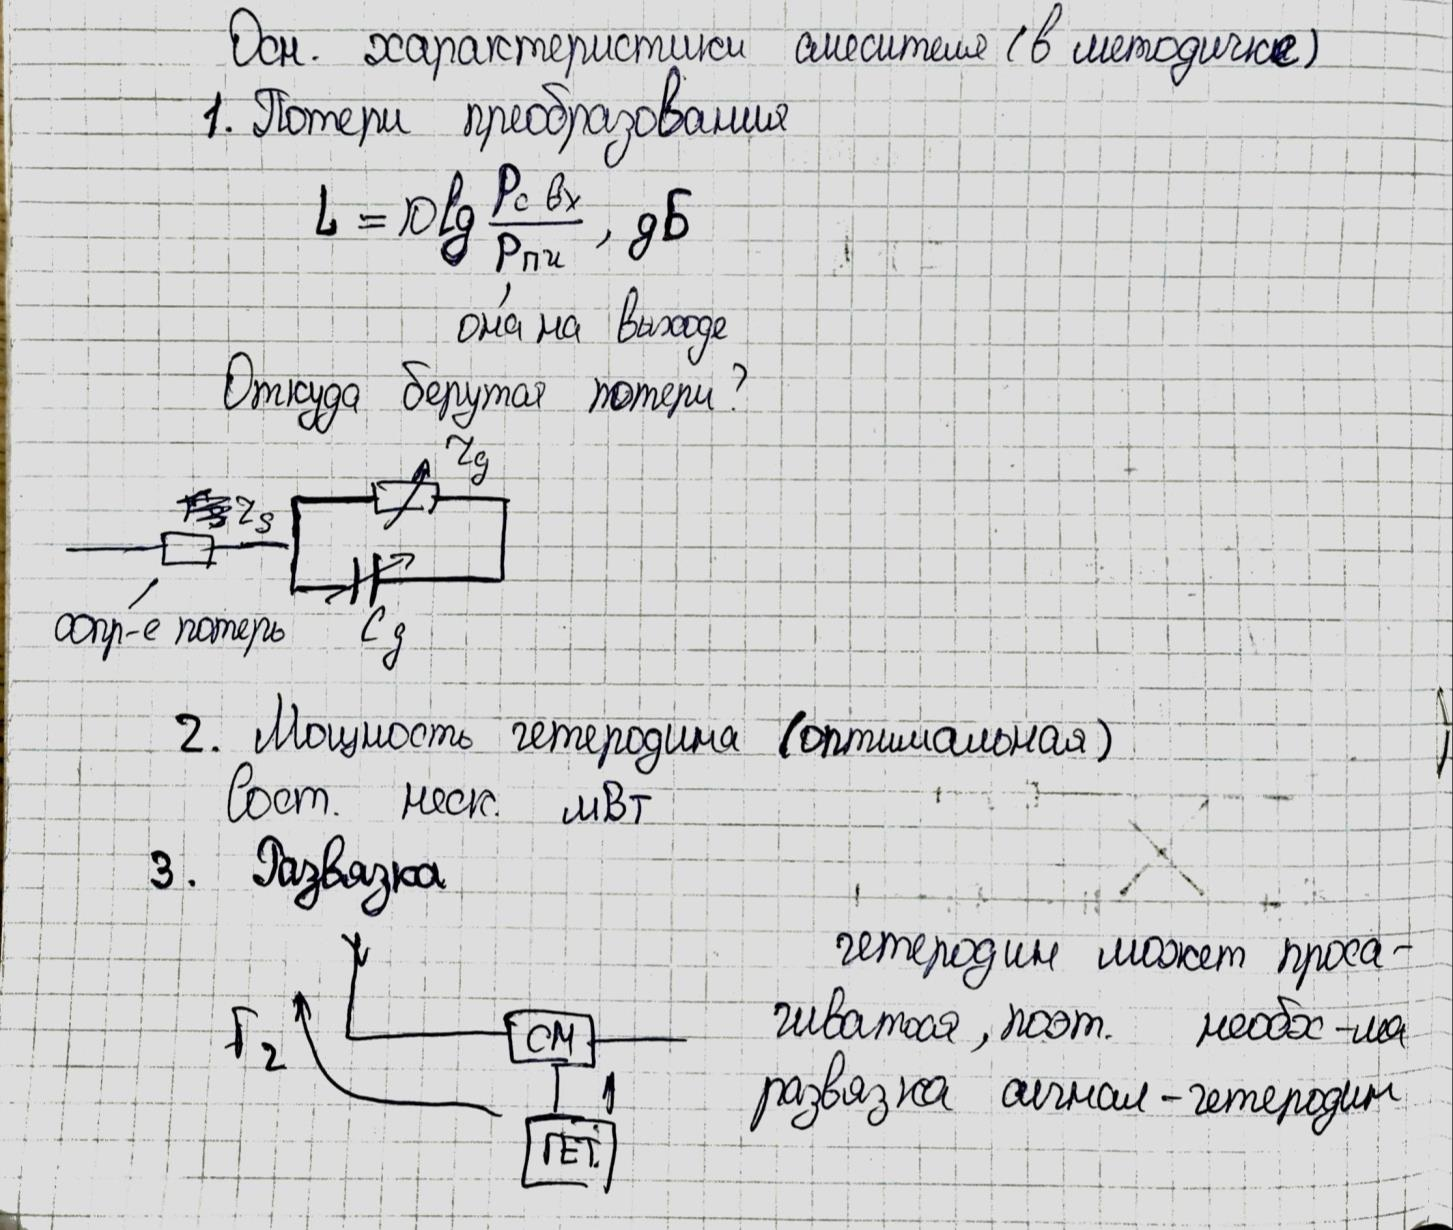 Осн. характеристики смесителя (в методичке)
1. Потери преобразования
L = 10 lg Pс вх / Pпч , дБ
она на выходе
Откуда берутся потери?
rд
rs
сопр-е потерь
Cд
2. Мощность гетеродина (оптимальная)
Сост. неск. мВт
3. Развязка
гетеродин может проса-
чиваться, поэт. необх-ма
развязка сигнал-гетеродин
СМ
ГЕТ.